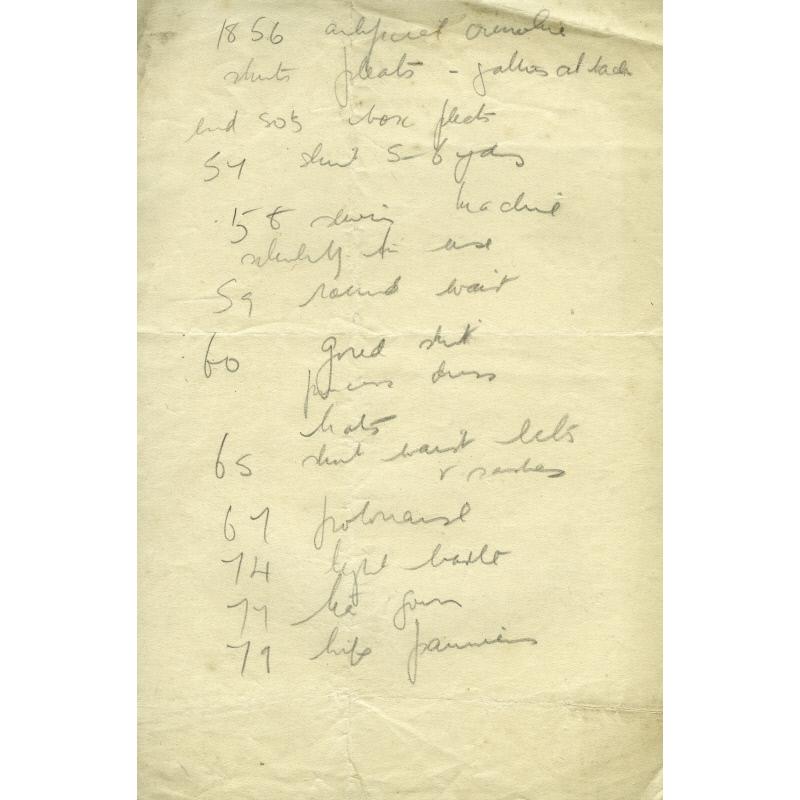 1856 artificial crinoline
skirts pleats - gathers at back
end 50s box pleats
57 skirt 5-6 yds
58 sewing machine
in use
59 round waist
60 gored skirt
princess dress
hats
65 short waist belts
& sashes
67 polonaise
74 tight bustle
77 tea gown
79 hip panniers